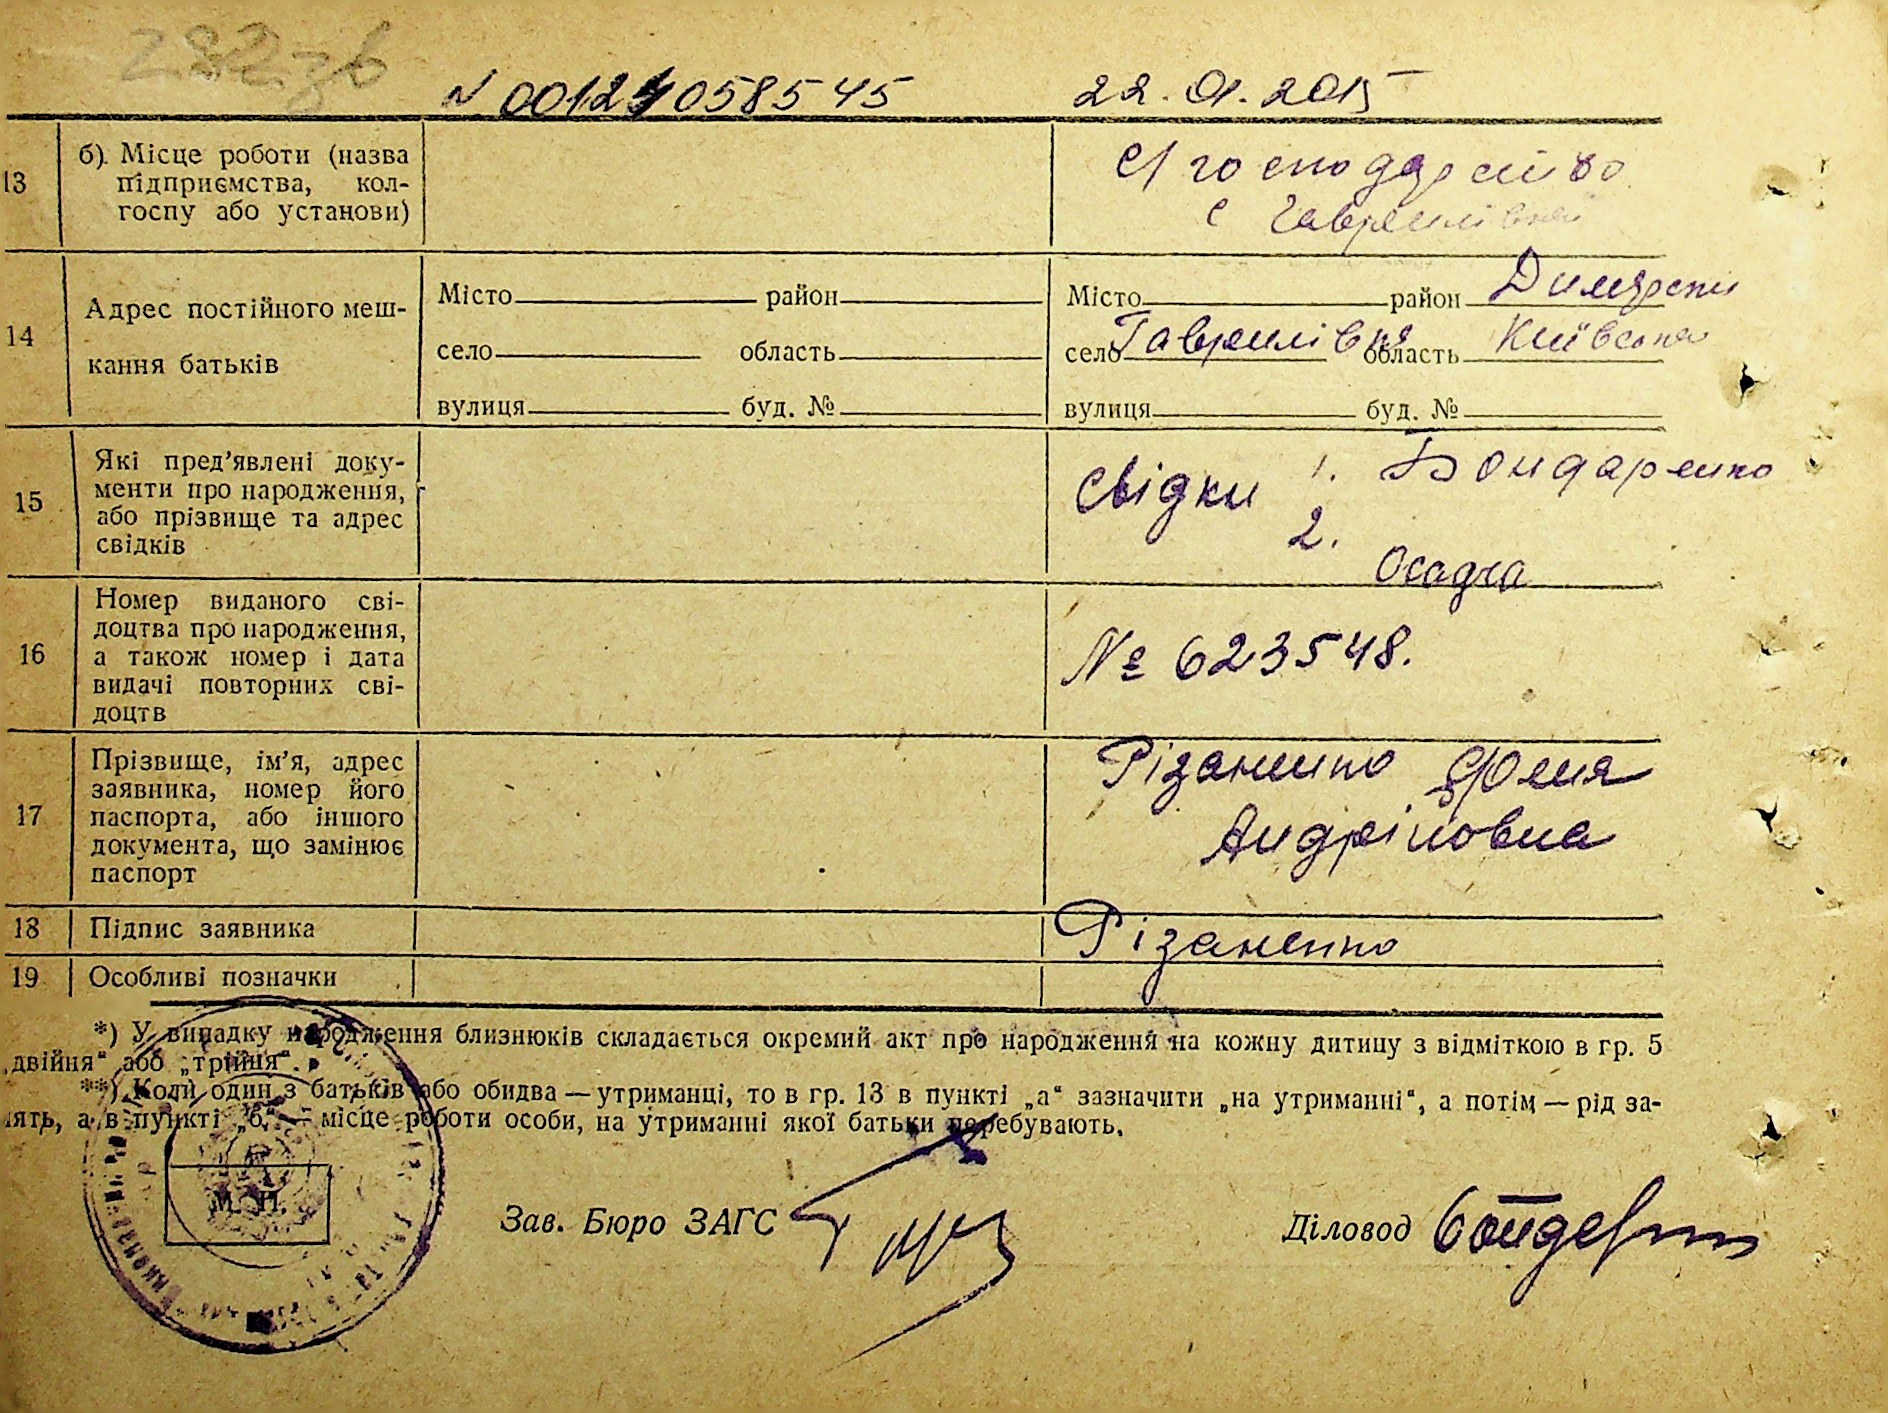 N 00124058545 22.01.2015
13 б). Місце роботи (назва підприємства, кол-
госпу або установи)
С/господарство
с Гаврилівка
14 Адрес постійного меш-
кання батьків
Місто район
село область
вулиця буд. №
Місто район Димерськ
село Гаврилівка область Київська
вулиця буд. №
15 Які пред'явлені доку-
менти про народження,
або прізвище та адрес
свідків
Свідки 1. Бондаренко
2. Осадча
16 Номер виданого сві-
доцтва про народження,
а також номер і дата
видачі повторних сві-
доцтв
№ 623548.
17 Прізвище, ім'я, адрес
заявника, номер його
паспорта, або іншого
документа, що замінює
паспорт
Різаненко
Андріповна
18 Підпис заявника Різаненко
19 Особливі позначки
*) У випадку народження близнюків складається окремий акт про народження на кожну дитину з відміткою в гр. 5
„двійня“ або „трійня“.
**) Коли один з батьків або обидва — утриманці, то в гр. 13 в пункті „а“ зазначити „на утриманні“, а потім — рід за-
нять, а в пункті „б“ — місце роботи особи, на утриманні якої батьки перебувають.
М. П.
Зав. Бюро ЗАГС Діловод